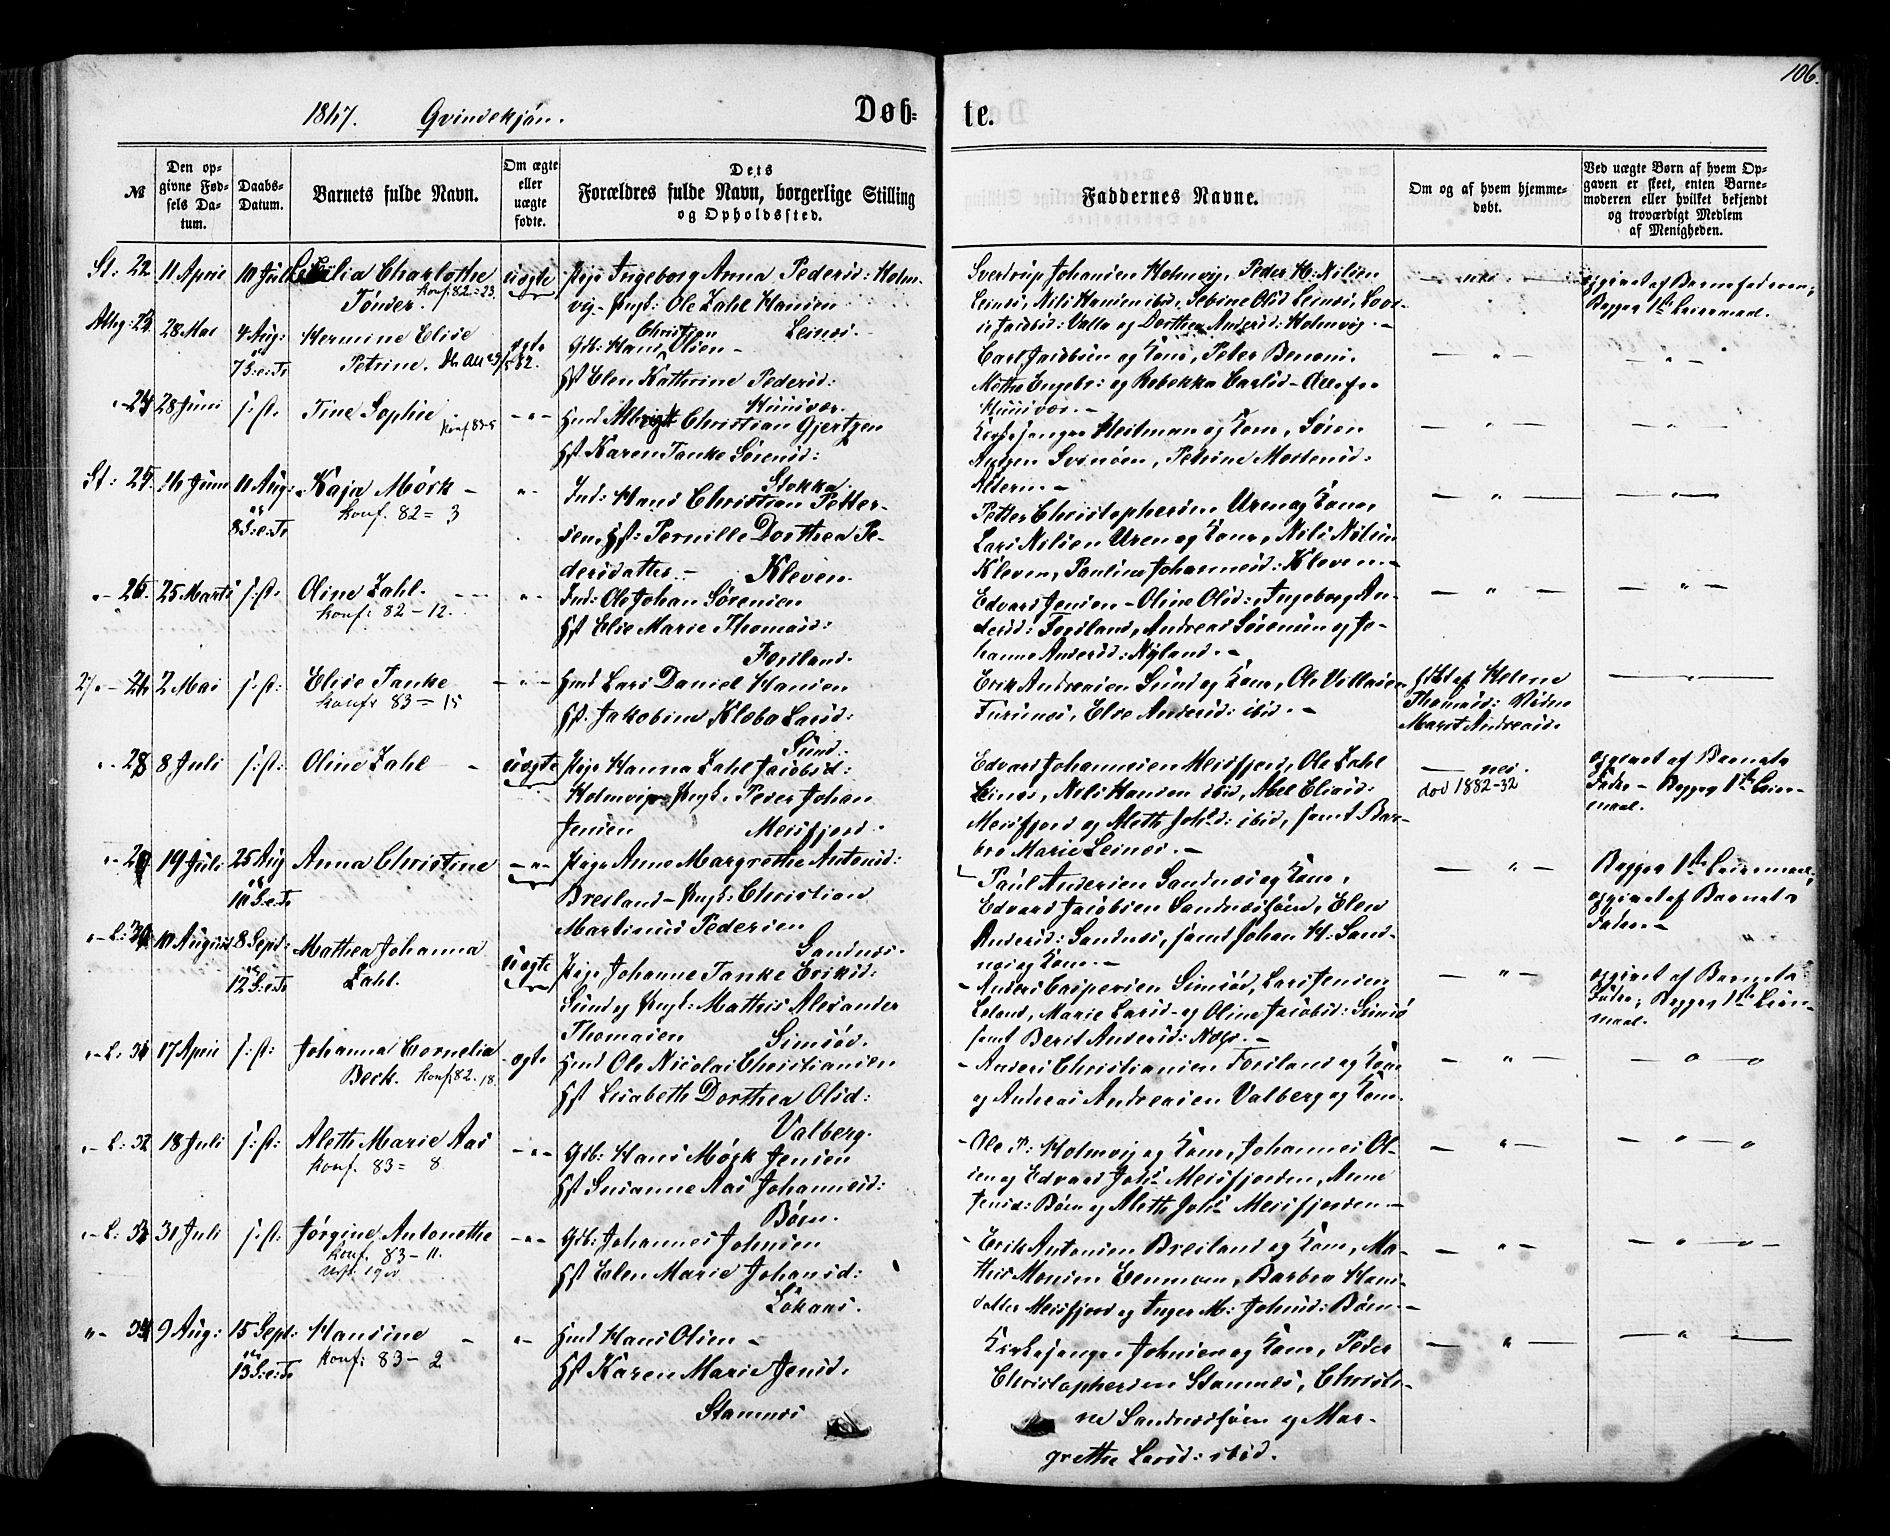 106.
1867. Qvindekjön. Døb-te.
№
Den opgivne Fødsels Datum.
Daabs-Datum.
Barnets fulde Navn.
Om ægte eller uægte fødte.
Dets Forældres fulde Navn, borgerlige Stilling og Opholdssted.
Faddernes Navne.
Om og af hvem hjemmedøbt.
Ved uægte Børn af hvem Opgaven er skeet, enten Barnemoderen eller hvilket bekjendt og troværdigt Medlem af Menigheden.
St: 22 11 April Charlothe
Tönder. konf. 82=23.
uægte
Pige Ingeborg Anna Pedersd: Holm-
vig - Ungk: Ole Zahl Hansen
Leines.
Sverdrup Johansen Holmvig, Peder H: Nilsen
Leines, Nils Hansen ibid, Sebine Olsd Leines,
Valla og Dorthea Andersd: Holmvig.
opgivet af Barnefaderen,
Begges 1ste Leiermaal.
28 Mai 4 Aug: 7 S.e.Tr
Hermine Elise
Petrine.
ægte
Gb: Hans Christian Olsen -
Hst Elen Kathrine Pedersd:
Husvær.
Carl Jacobsen og Kone, Peter Benoni,
Methe Engebr: og Rebekka Carlsd - Alle fra
Husvær.
24 28 Juni s: st. Tine Sophie konf 83-5
Hmd Albrigt Christian Gjertzen
Hst Karen Tanke Sörensd:
Stokka.
Kirkesanger Heitman og Kone, Sören
Svinöen, Petrine Mortensd:
Alteren.
St: 25. 16 Juni 11 Aug: 8 S.e.Tr
Kaja Mörk -
konf. 82 = 3
Ind: Hans Christian Petter-
sen, Hst: Pernille Dorthea Pe-
dersdatter - Kleven.
Petter Christophersen Uren og Kone,
Lars Nilsen Uren og Kone, Nils Nilsen
Kleven, Pauline Johannesd: Kleven.
26. 25 Marts s: st. Oline Zahl.
konf: 82-12.
Ind: Ole Johan Sörensen
Hst Elie Marie Thomasd:
Forsland.
Edvard Jensen - Oline Olsd:, Ingeborg An-
dersd: Forsland, Andreas Sörensen og Jo-
hanna Andersd: Nyland.
27 2 Mai s: st: Elise Tanke
konf: 83-15
Hmd Lars Daniel Hansen
Hst. Jakobine Klæbo Larsd:
Sund.
Erik Andreasen Sund og Kone, Ole
Else Andersd: ibid.
döbt af Helene
Thomasd:
Marit Andreasd.
28 8 Juli s: st: Oline Zahl -
uægte
Pige Hanna Zahl Jacobsd:
Holmvig - Ungk. Peder Johan
Jensen Meisfjord.
Edvard Johannesen Meisfjord, Ole Zahl
Leines, Nils Hansen ibid, Mel Eliasd:
Meisfjord og Aleth Johsd: ibid, samt Bar-
bro Marie Leines.
nei.
död 1882-32
opgivet af Barnets
Fader - Begges 1ste Leier-
maal.
29 19 Juli 25 Aug 10 S.e.Tr
Anna Christine
Pige Anne Margrethe Antonsd:
Breiland - Ungk: Christian
Martinus Pedersen
Sandnes.
Paul Andersen Sandnes og Kone,
Edvard Jacobsen Sandnessjöen, Elen
Andersd: Sandnes, samt Johan H: Sand-
nes og Kone.
Begges 1ste Leiermaal,
opgivet af Barnets
Fader.
L: 30 10 August 8 Sept: 12 S.e.Tr
Mathea Johanna
Zahl.
uægte
Pige Johanne Tanke Eriksd:
Sund og Ungk: Mathis Alexander
Thomasen Simsöd.
Anders Caspersen Simsöd, Lars Jensen
Leland, Marie Larsd - og Oline Jacobsd: Simsö
samt Berit Andersd:
opgivet af Barnets
Fader, Begges 1ste Leier-
maal.
L: 31 17 April s: st: Johanna Cornelia
Beck. konf 82. 18.
ægte
Hmd Ole Nicolai Christiansen
Hst Lisabeth Dorthea Olsd:
Valberg.
Anders Christiansen Forsland og Kone
og Andreas Andreasen Valberg og Kone.
L: 32 18 Juli s: st: Aleth Marie Aas
konf. 83= 8.
Gdb: Hans Mörk Jensen
Hst Susanne Aas Johannesd:
Böen.
Ole P: Holmvig og Kone, Johannes Ol-
sen og Edvard Johs Meisfjorden, Anne
Jensd: Böen og Aleth Johs Meisfjorden.
L: 33 31 Juli s: st: Jörgine Antonethe
konf. 83-11.
Gdb: Johannes Johnsen
Hst Elen Marie Johansd:
Lökaas.
Erik Antonsen Breiland og Kone, Ma-
this Monsen Barbro Hans-
datter Meisfjord og Inger M: Johnsd: Böen.
34 9 Aug: 15 Sept: 13 S.e.Tr
Hansine -
konf: 83-2
Hmd Hans Olsen -
Hst Karen Marie Jensd.
Stamnes
Kirkesanger Johnsen og Kone, Peder
Christophersen Stamnes, Christi-
ne Sandnessjöen og Mar-
grethe Larsd: ibid.